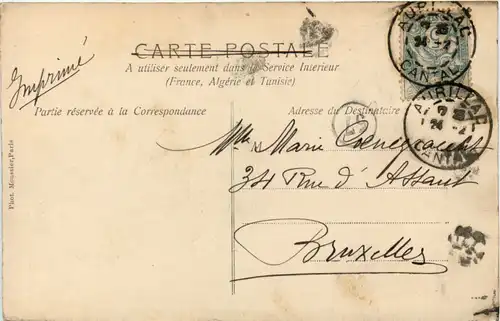 Imprimé
CARTE POSTALE
A utiliser seulement dans le Service Interieur
(France, Algérie et Tunisie)
Partie réservée à la Correspondance
Adresse du Destinataire
Phot. Moussier, Paris
AURILLAC
24
CANTAL
AURILLAC
24
CANTAL
Mlle Marie
34 Rue d'Assaut
Bruxelles